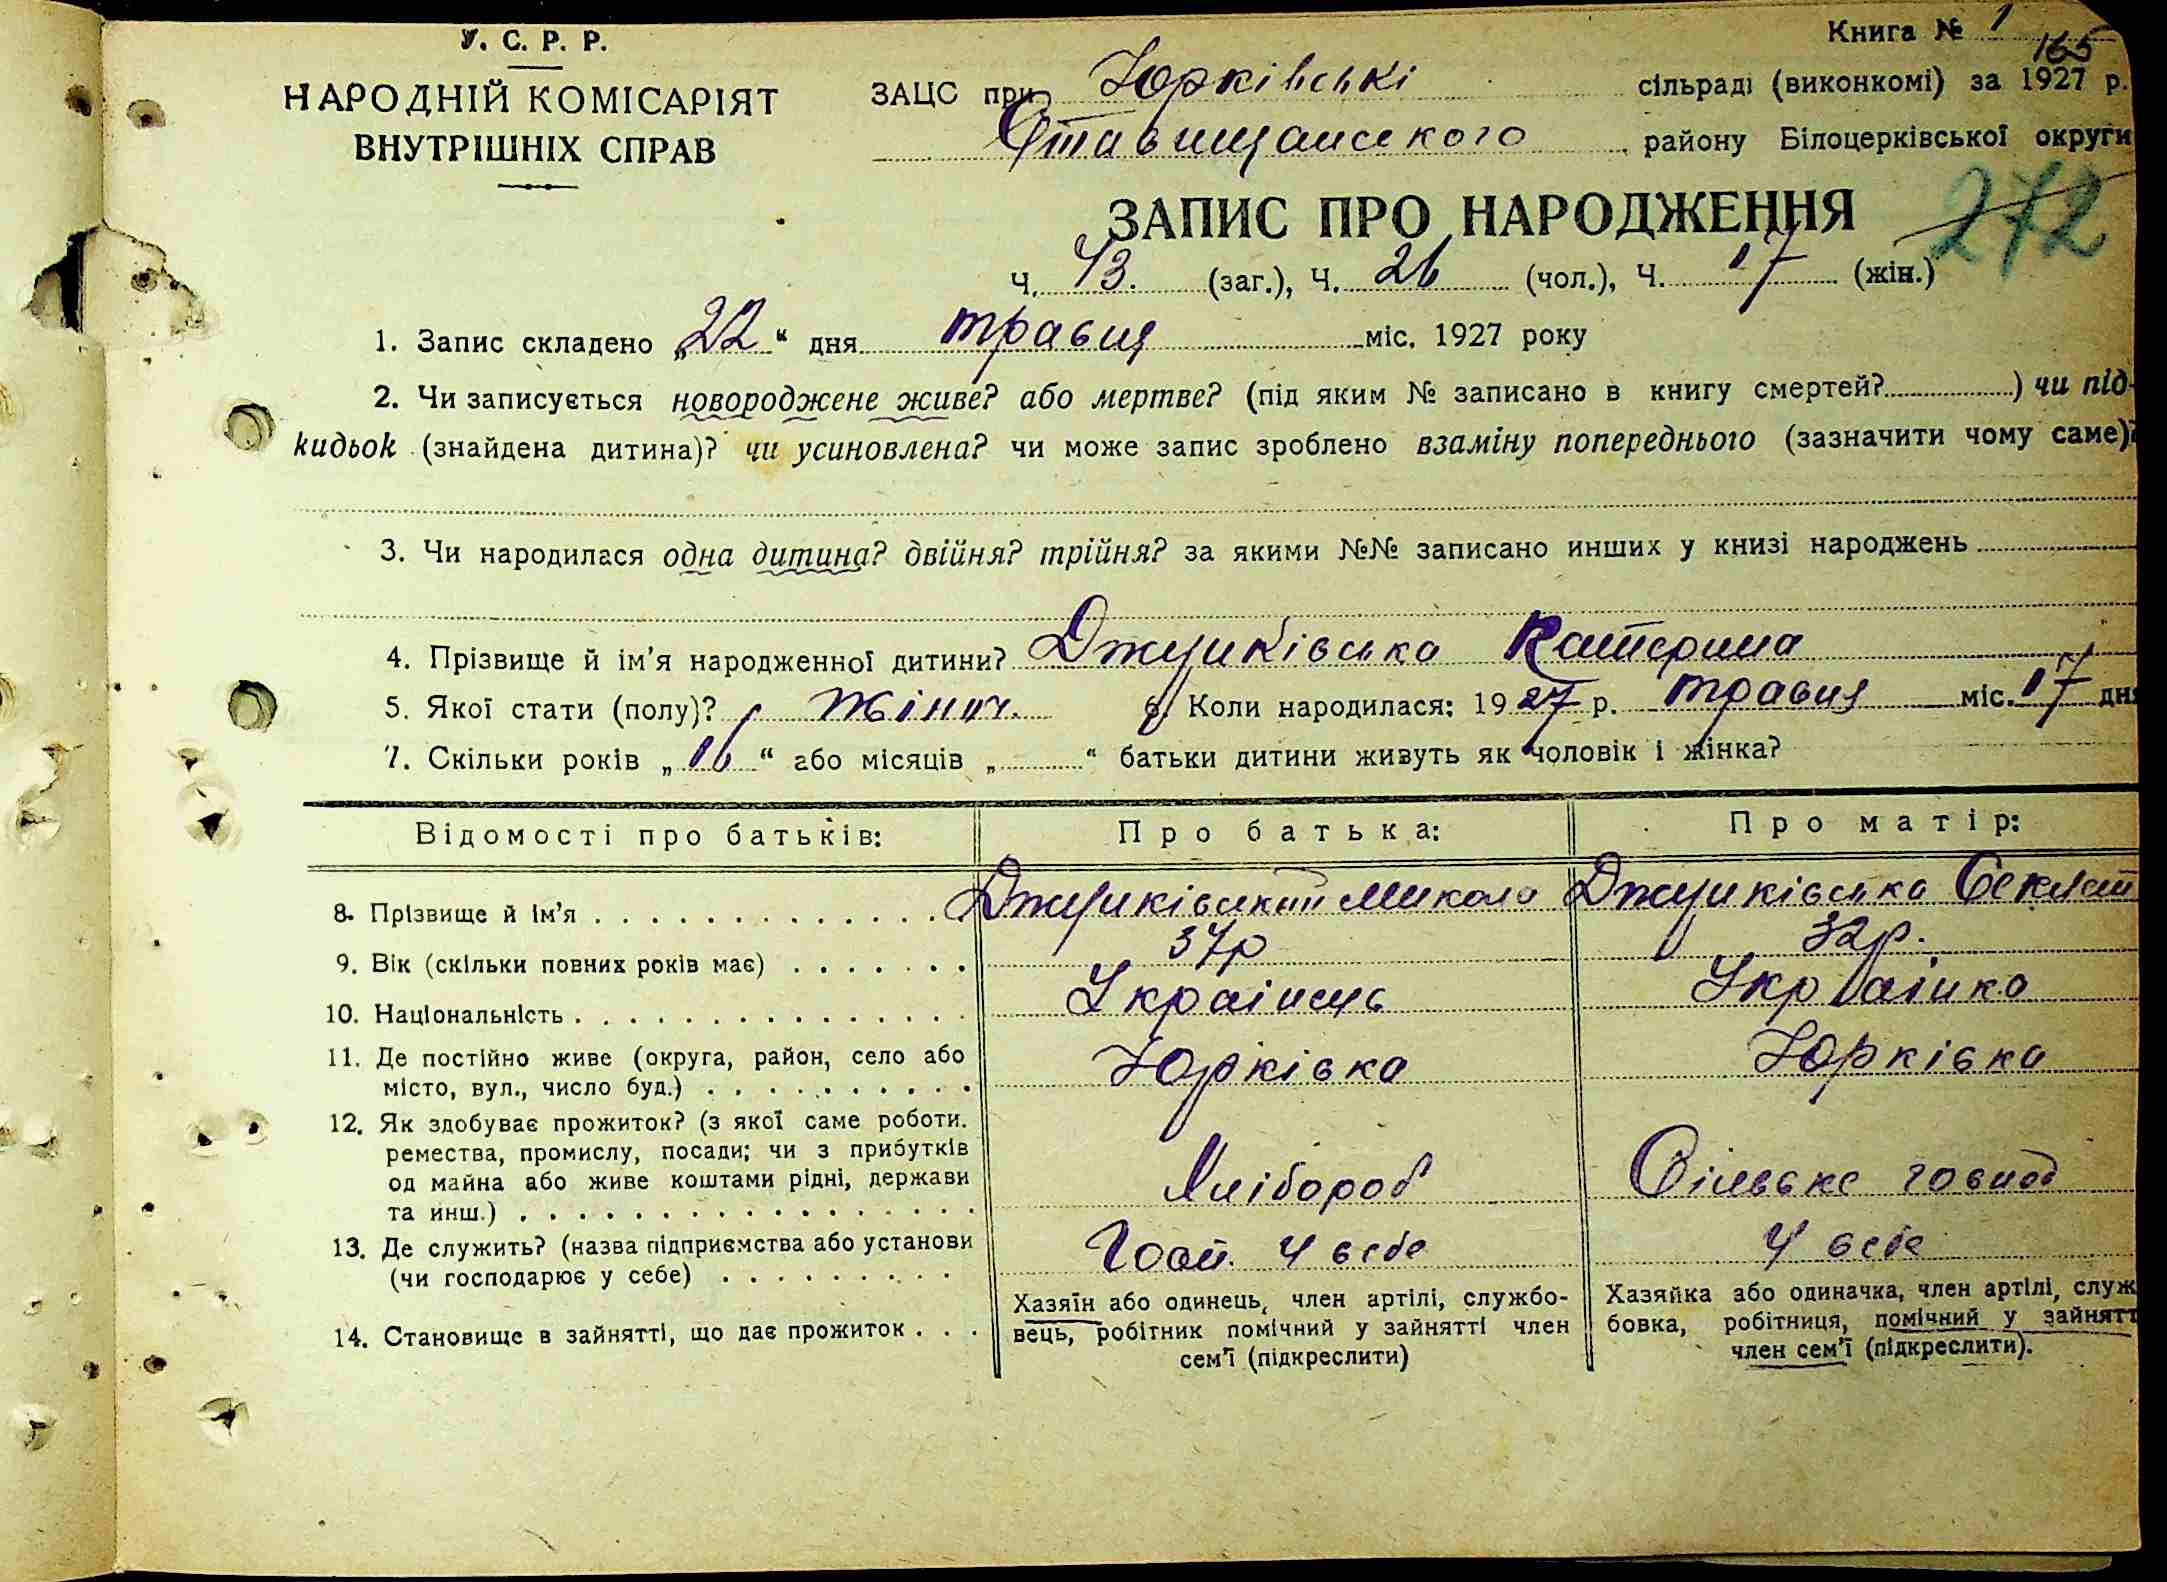 У. С. Р. Р.
НАРОДНІЙ КОМІСАРІЯТ
ВНУТРІШНІХ СПРАВ
Книга № 1
165
ЗАЦС при Юрківські сільраді (виконкомі) за 1927 р.
Ставищанського району Білоцерківської округи
ЗАПИС ПРО НАРОДЖЕННЯ
272
Ч. 43. (заг.), Ч. 26 (чол.), Ч. 17 (жін.)
1. Запис складено „22“ дня травця міс. 1927 року
2. Чи записується новороджене живе? або мертве? (під яким № записано в книгу смертей? ) чи під-
кидьок (знайдена дитина)? чи усиновлена? чи може запис зроблено взаміну попереднього (зазначити чому саме)?
3. Чи народилася одна дитина? двійня? трійня? за якими №№ записано инших у книзі народжень
4. Прізвище й ім'я народженної дитини? Джунківська Катерина
5. Якої стати (полу)? жіноч. 6. Коли народилася: 1927 р. травця міс. 17 дня
7. Скільки років „16“ або місяців „ “ батьки дитини живуть як чоловік і жінка?
Відомості про батьків: Про батька: Про матір:
8. Прізвище й ім'я Джунківський Микола Джунківська
9. Вік (скільки повних років має) 37р 32р.
10. Національність Українець Українка
11. Де постійно живе (округа, район, село або
місто, вул., число буд.) Юрківка Юрківка
12. Як здобуває прожиток? (з якої саме роботи.
ремества, промислу, посади; чи з прибутків
од майна або живе коштами рідні, держави
та инш.) Хлібороб Сільське господ
13. Де служить? (назва підприємства або установи
(чи господарює у себе) Госп. у себе у себе
14. Становище в зайнятті, що дає прожиток
Хазяїн або одинець, член артілі, службо-
вець, робітник помічний у зайнятті член
сем'ї (підкреслити)
Хазяйка або одиначка, член артілі, служ
бовка, робітниця, помічний у зайнятт
член сем'ї (підкреслити).